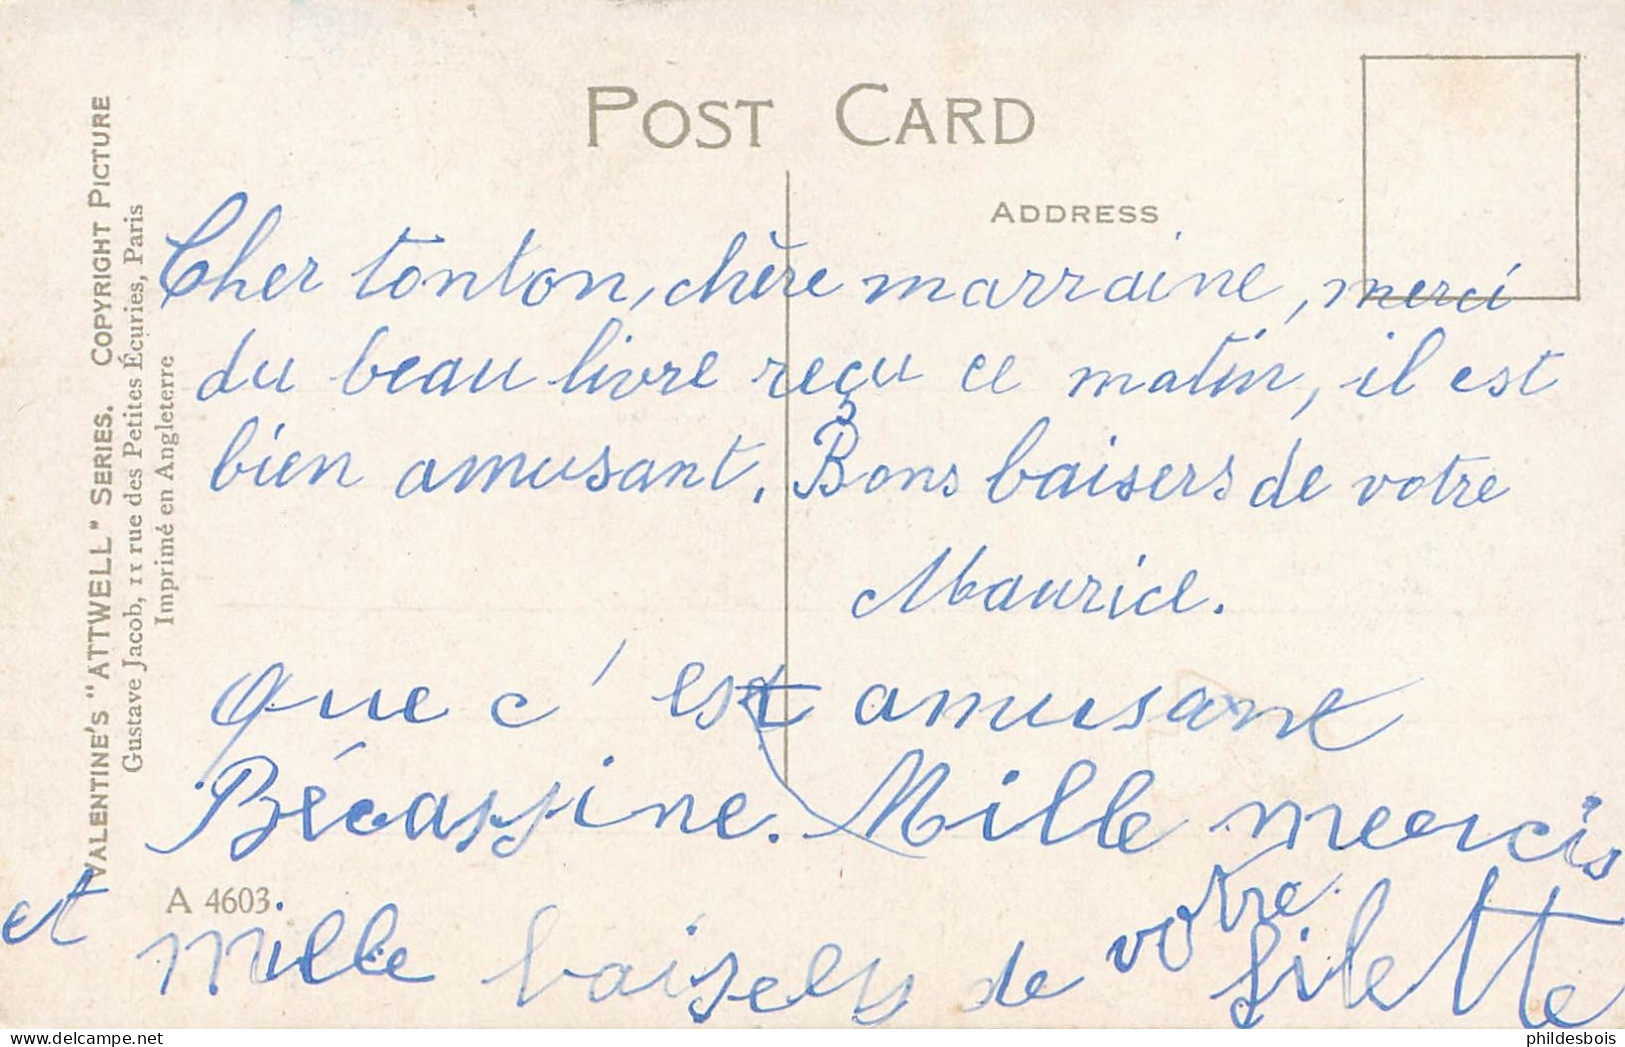 POST CARD
ADDRESS
VALENTINE'S "ATTWELL" SERIES. COPYRIGHT PICTURE
Gustave Jacob, 11 rue des Petites Écuries, Paris
Imprimé en Angleterre
Cher tonton, chère marraine, merci
du beau livre reçu ce matin, il est
bien amusant. Bons baisers de votre
Maurice.
que c'est amusant
Bécassine. Mille mercis
et
A 4603.
mille baisers de votre
filette
delcampe.net
phildesbois